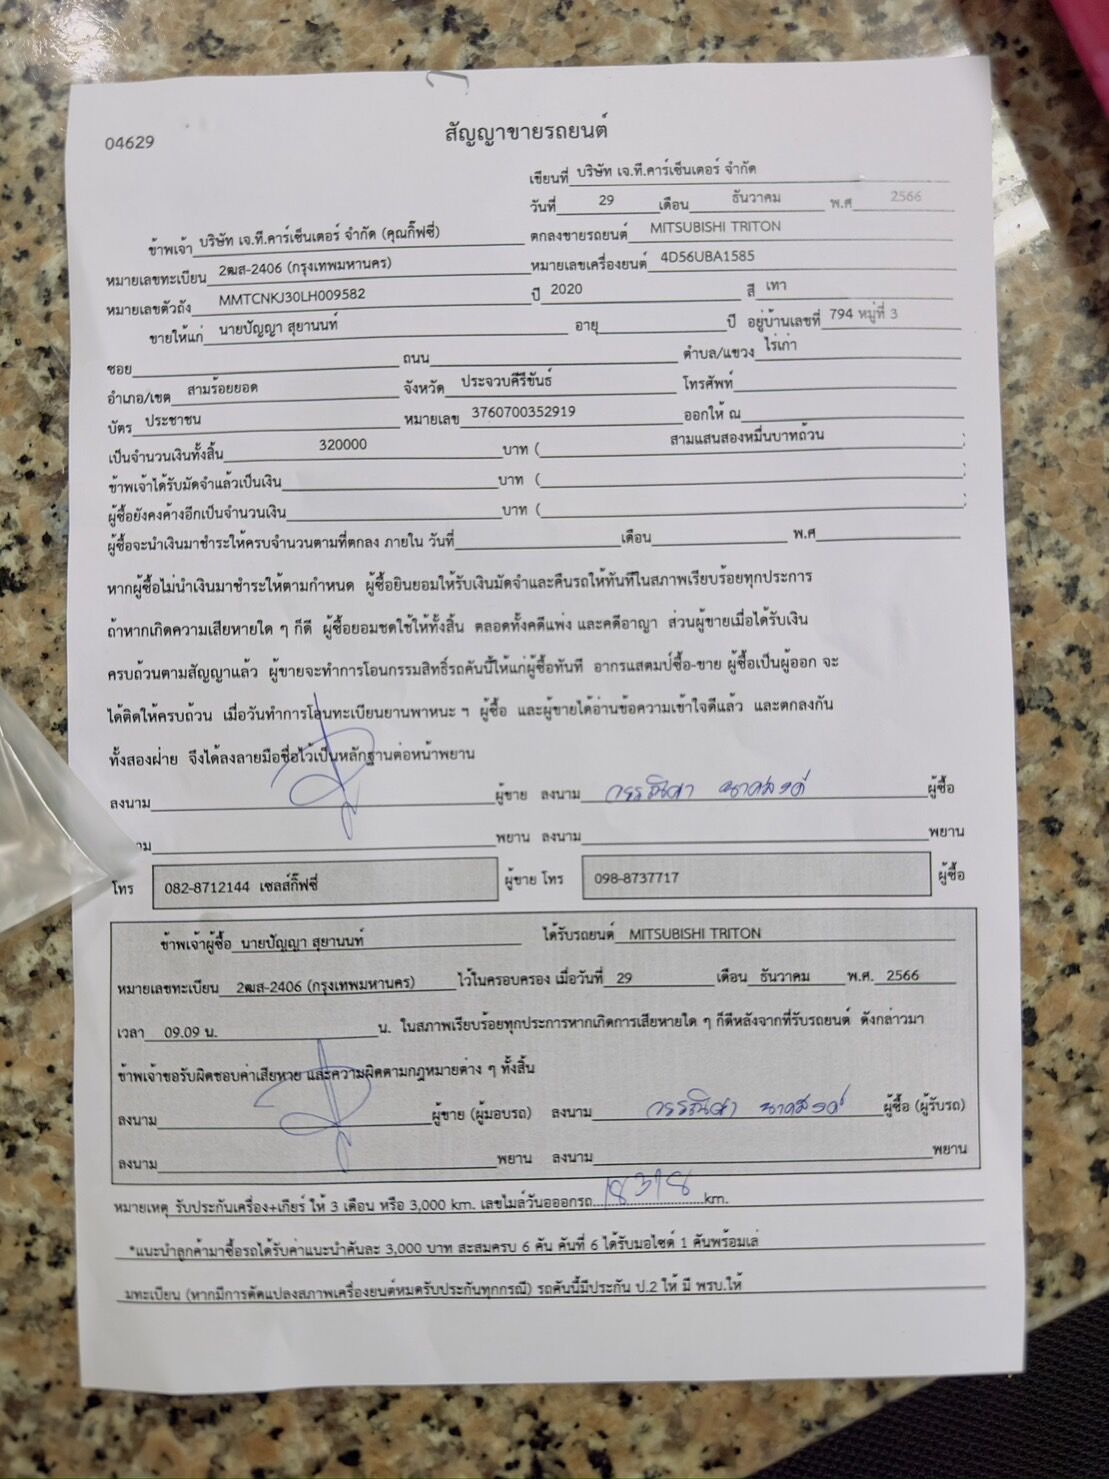 04629
สัญญาขายรถยนต์
เขียนที่ บริษัท เจ.ที.คาร์เซ็นเตอร์ จำกัด
วันที่ 29 เดือน ธันวาคม พ.ศ 2566
ข้าพเจ้า บริษัท เจ.ที.คาร์เซ็นเตอร์ จำกัด (คุณกิ๊ฟซี่) ตกลงขายรถยนต์ MITSUBISHI TRITON
หมายเลขทะเบียน 2ฒส-2406 (กรุงเทพมหานคร) หมายเลขเครื่องยนต์ 4D56UBA1585
หมายเลขตัวถัง MMTCNKJ30LH009582 ปี 2020 สี เทา
ขายให้แก่ นายปัญญา สุยานนท์ อายุ ปี อยู่บ้านเลขที่ 794 หมู่ที่ 3
ซอย ถนน ตำบล/แขวง ไร่เก่า
อำเภอ/เขต สามร้อยยอด จังหวัด ประจวบคีรีขันธ์ โทรศัพท์
บัตร ประชาชน หมายเลข 3760700352919 ออกให้ ณ
เป็นจำนวนเงินทั้งสิ้น 320000 บาท ( สามแสนสองหมื่นบาทถ้วน )
ข้าพเจ้าได้รับมัดจำแล้วเป็นเงิน บาท ( )
ผู้ซื้อยังคงค้างอีกเป็นจำนวนเงิน บาท ( )
ผู้ซื้อจะนำเงินมาชำระให้ครบจำนวนตามที่ตกลง ภายใน วันที่ เดือน พ.ศ
หากผู้ซื้อไม่นำเงินมาชำระให้ตามกำหนด ผู้ซื้อยินยอมให้รับเงินมัดจำและคืนรถให้ทันทีในสภาพเรียบร้อยทุกประการ
ถ้าหากเกิดความเสียหายใด ๆ ก็ดี ผู้ซื้อยอมชดใช้ให้ทั้งสิ้น ตลอดทั้งคดีแพ่ง และคดีอาญา ส่วนผู้ขายเมื่อได้รับเงิน
ครบถ้วนตามสัญญาแล้ว ผู้ขายจะทำการโอนกรรมสิทธิ์รถคันนี้ให้แก่ผู้ซื้อทันที อากรแสตมป์ซื้อ-ขาย ผู้ซื้อเป็นผู้ออก จะ
ได้ติดให้ครบถ้วน เมื่อวันทำการโอนทะเบียนยานพาหนะ ฯ ผู้ซื้อ และผู้ขายได้อ่านข้อความเข้าใจดีแล้ว และตกลงกัน
ทั้งสองฝ่าย จึงได้ลงลายมือชื่อไว้เป็นหลักฐานต่อหน้าพยาน
ลงนาม ผู้ขาย ลงนาม วรรณิศา นาคสงค์ ผู้ซื้อ
พยาน ลงนาม พยาน
โทร 082-8712144 เซลส์กิ๊ฟซี่ ผู้ขาย โทร 098-8737717 ผู้ซื้อ
ข้าพเจ้าผู้ซื้อ นายปัญญา สุยานนท์ ได้รับรถยนต์ MITSUBISHI TRITON
หมายเลขทะเบียน 2ฒส-2406 (กรุงเทพมหานคร) ไว้ในครอบครอง เมื่อวันที่ 29 เดือน ธันวาคม พ.ศ. 2566
เวลา 09.09 น. น. ในสภาพเรียบร้อยทุกประการหากเกิดการเสียหายใด ๆ ก็ดีหลังจากที่รับรถยนต์ ดังกล่าวมา
ข้าพเจ้าขอรับผิดชอบค่าเสียหาย และความผิดตามกฎหมายต่าง ๆ ทั้งสิ้น
ลงนาม ผู้ขาย (ผู้มอบรถ) ลงนาม วรรณิศา นาคสงค์ ผู้ซื้อ (ผู้รับรถ)
ลงนาม พยาน ลงนาม พยาน
หมายเหตุ รับประกันเครื่อง+เกียร์ ให้ 3 เดือน หรือ 3,000 km. เลขไมล์วันอออกรถ 18318 km.
*แนะนำลูกค้ามาซื้อรถได้รับค่าแนะนำคันละ 3,000 บาท สะสมครบ 6 คัน คันที่ 6 ได้รับมอไซด์ 1 คันพร้อมเล่
มทะเบียน (หากมีการดัดแปลงสภาพเครื่องยนต์หมดรับประกันทุกกรณี) รถคันนี้มีประกัน ป.2 ให้ มี พรบ.ให้